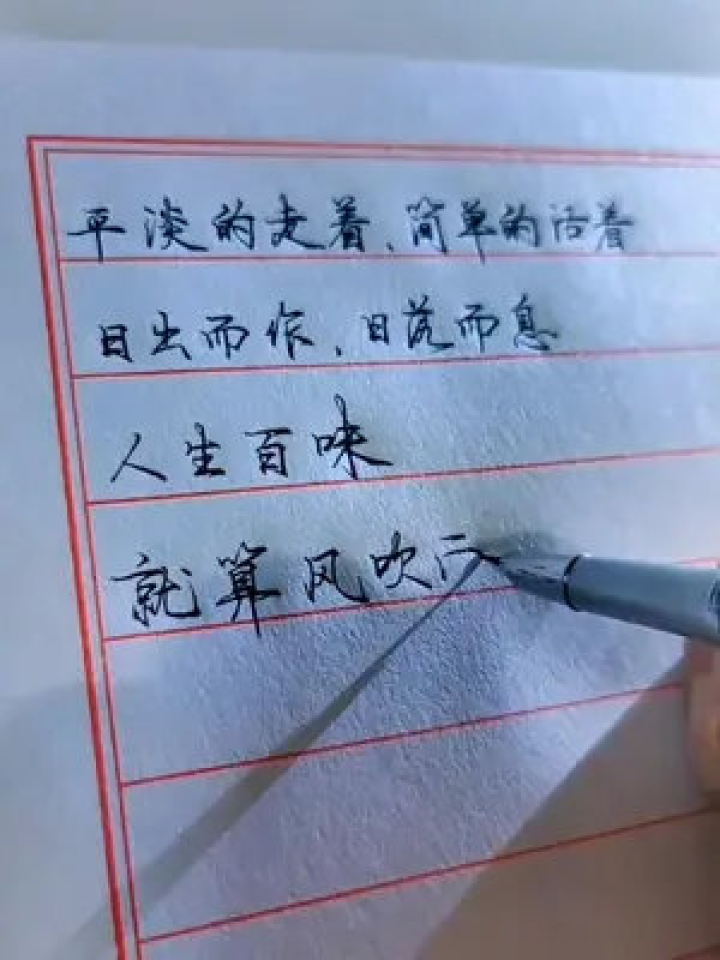 平淡的走着、简单的活着
日出而作、日落而息
人生百味
就算风吹